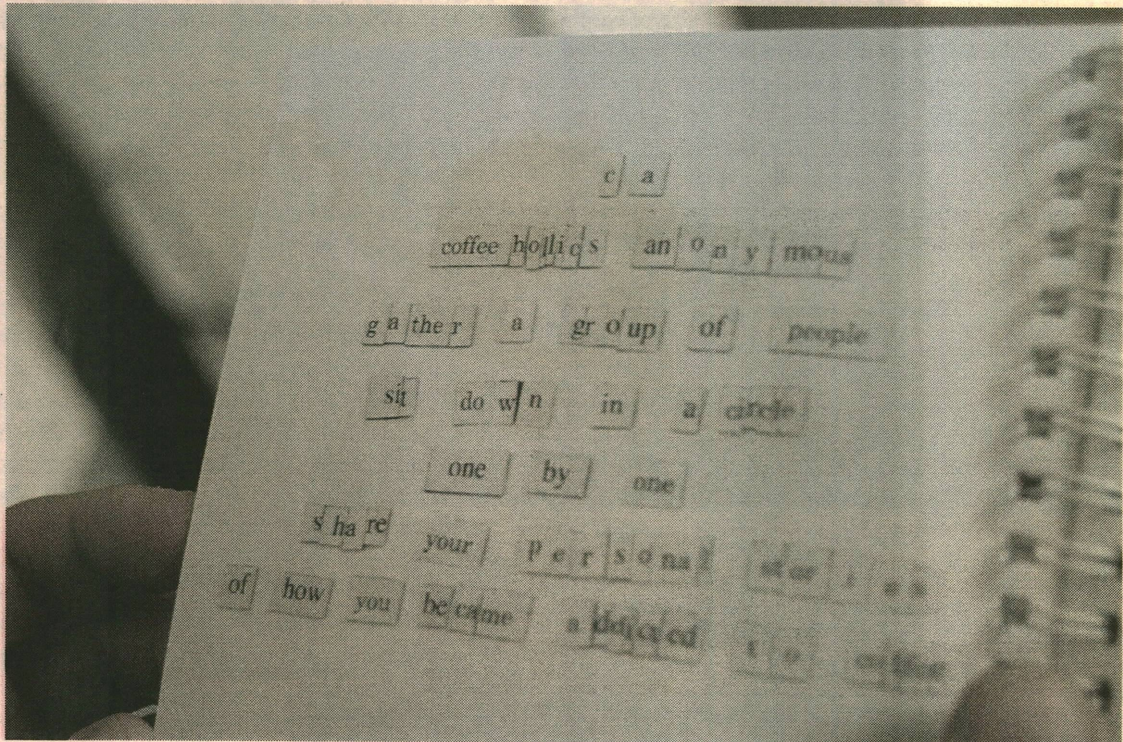 c a
coffee hollics anonymous
gather a group of people
sit down in a circle
one by one
share your personal stories
of how you became addicted to coffee